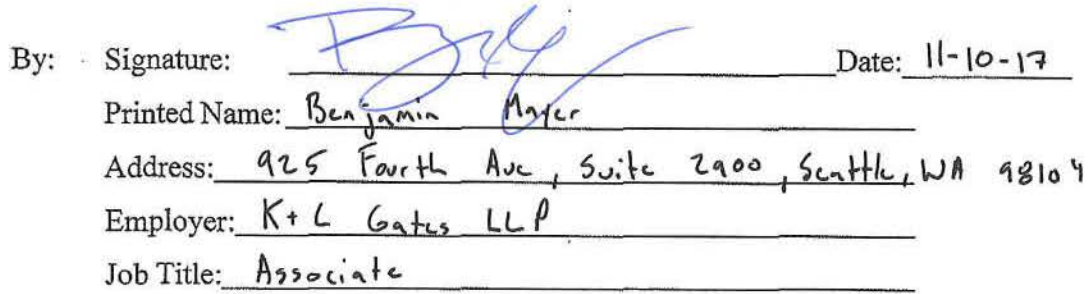 By: Signature: Date: 11-10-17
Printed Name: Benjamin Mayer
Address: 925 Fourth Ave, Suite 2900, Seattle, WA 98104
Employer: K+L Gates LLP
Job Title: Associate